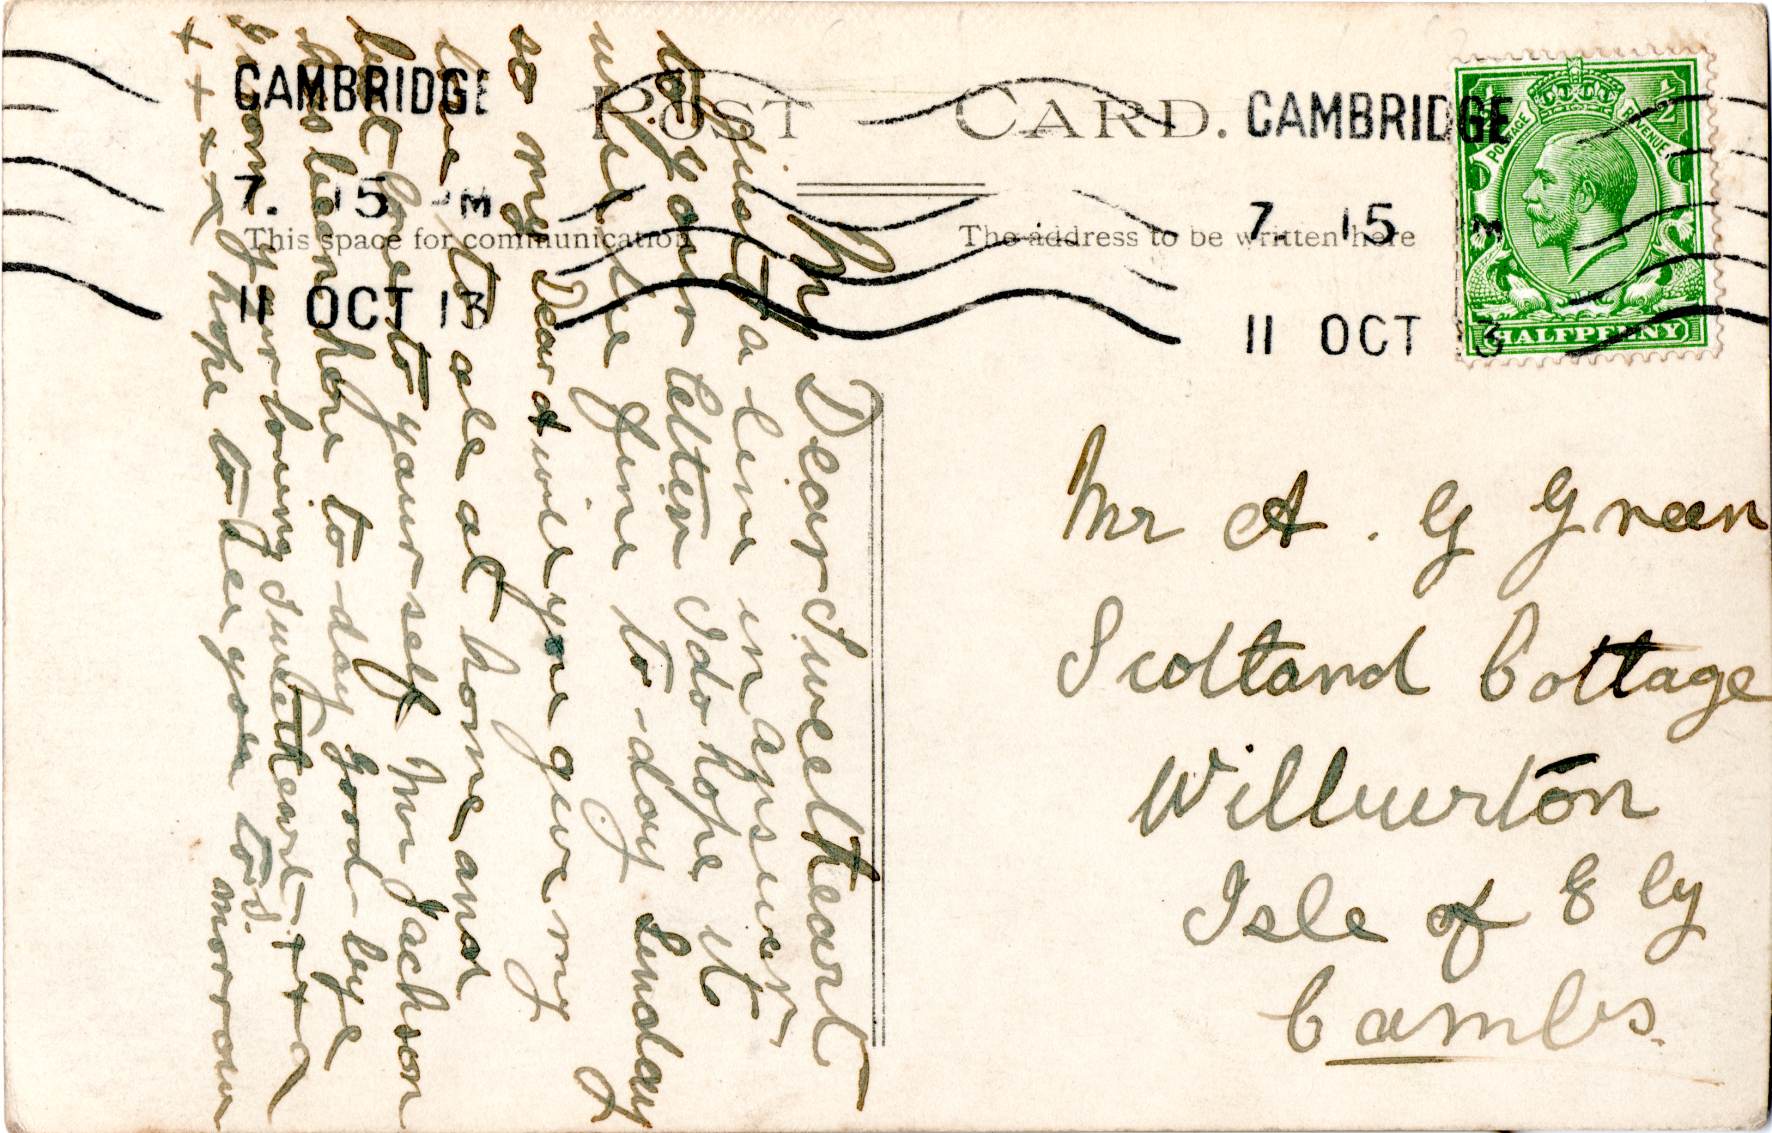 POST CARD.
CAMBRIDGE
7. 15 PM
11 OCT 13
CAMBRIDGE
7. 15 PM
11 OCT 13
POSTAGE REVENUE
½ ½
HALFPENNY
This space for communication
The address to be written here
Mr A. G Green
Scotland Cottage
Wilburton
Isle of Ely
Cambs.
My Dear Sweetheart
just a line in answer
to your letter I do hope it
will be fine to-day & Sunday
so my Dear & will you give my
love to all at home and
best love to yourself Mr Jackson
has been here to-day good bye
from your loving Sweetheart
x x x x hope to see you to morrow